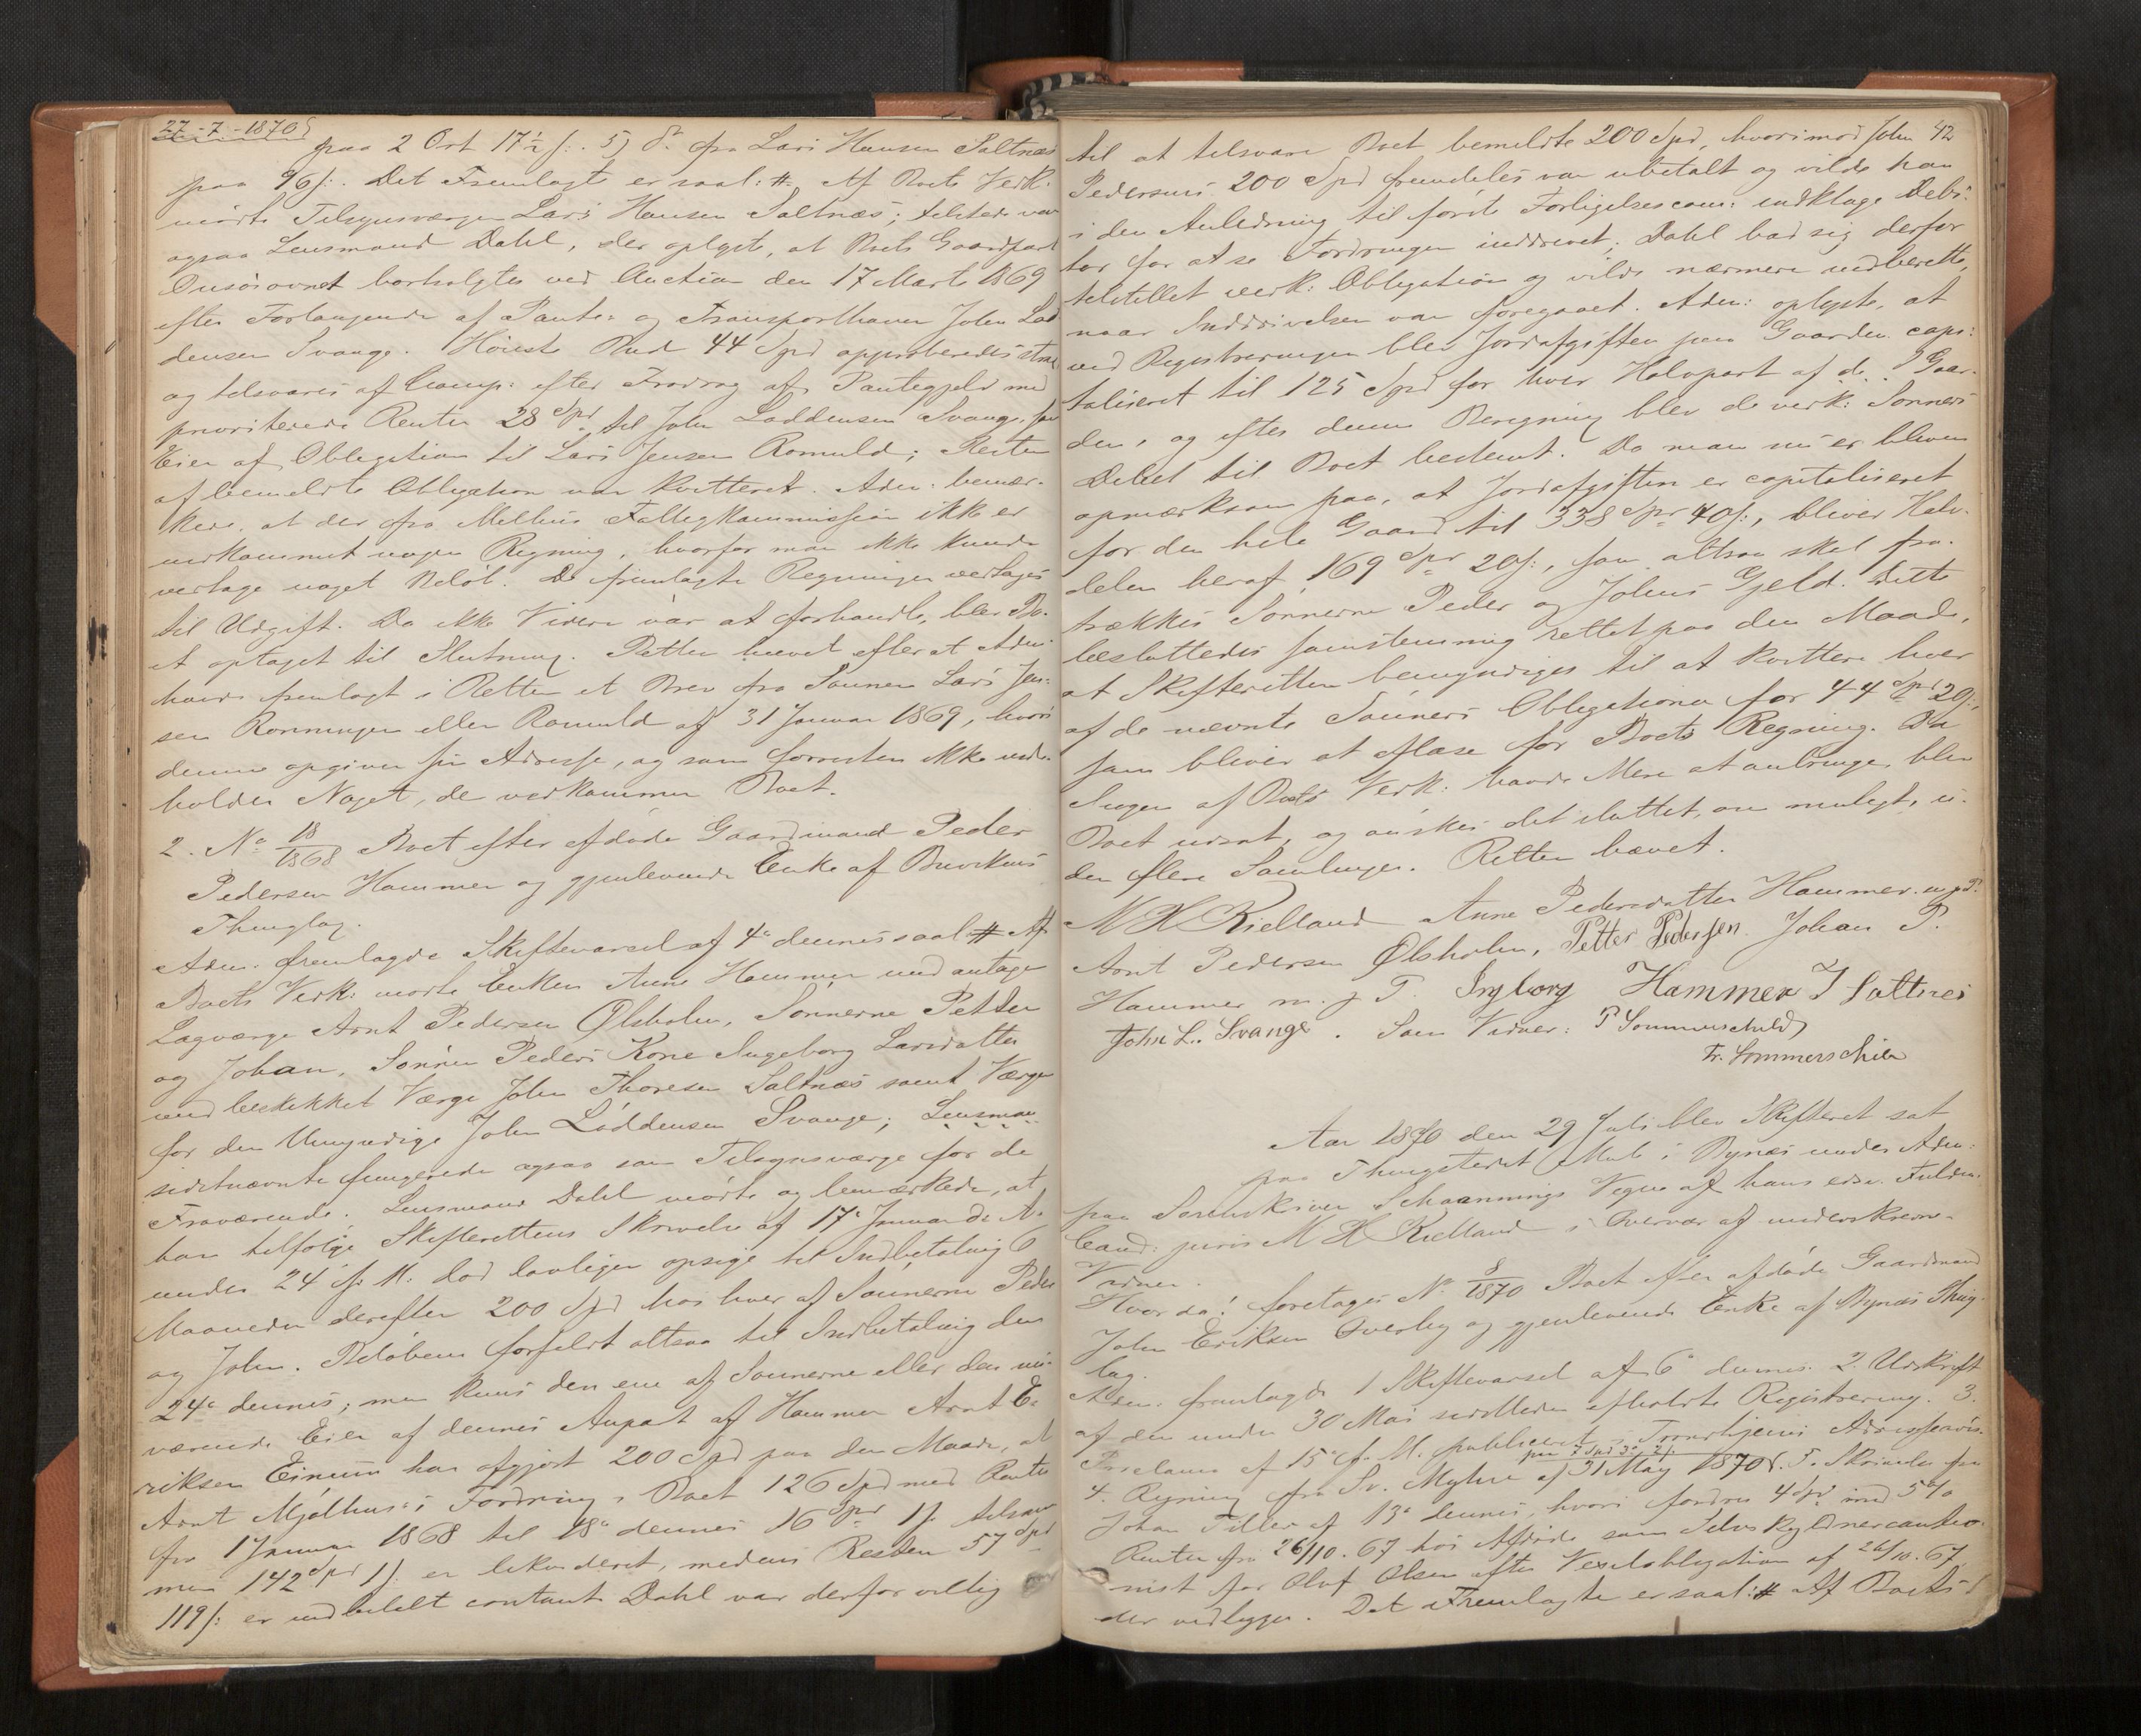 27-7-1870
paa 2 Ort 17½ s: 5) do fra Lars Hansen Saltnæs
paa 96 s:. Det Fremlagte er saal: #. Af Boets Vedk:
mødte Tilsynsværgen Lars Hansen Saltnæs; tilstede var
ogsaa Lensmand Dahl, der oplyste, at Boets Gaardpart
bortsolgtes ved Auction den 17 Marts 1869
efter Forlangende af Pante- og Transporthaver John Lod
densen Svange. Høieste Bud 44 Spd approberedes strax
og tilsvares af Comp: efter Fradrag af Pantegjeld med
prioriterede Renter 28 Spd til John Loddensen Svange som
Eier af Obligation til Lars Jensen Romuld; Resten
af bemeldte Obligation var kvitteret. Adm: bemær-
kede, at der fra Melhus Fattigkommission ikke er
indkommet nogen Regning, hvorfor man ikke kunde
vedtage noget Beløb. De fremlagte Regninger vedtages
til Udgift. Da ikke Videre var at forhandle, blev Bo-
et optaget til Slutning. Retten hævet efterat Adm:
havde fremlagt i Retten et Brev fra Sønnen Lars Jen-
sen Ronningen eller Romuld af 31 Januar 1869, hvori
denne opgiver sin Adresse, og som forresten ikke inde-
holder Noget, de vedkommer Boet.
2. No 18/1868 Boet efter afdøde Gaardmand Peder
Pedersen Hammer og gjenlevende Enke af Buvikens
Thinglag.
Adm. fremlagde Skiftevarsel af 4de dennes saal # Af
Boets Vedk: mødte Enken Anne Hammer med antagen
Lagværge Arnt Pedersen Ølsholm, Sønnerne Petter
og Johan, Sønnen Peders Kone Ingeborg Larsdatter
med beskikket Værge John Thoresen Saltnæs samt Værgen
for den Umyndige John Loddensen Svange; Lensman
sidstnævnte fungerede ogsaa som Tilsynsværge for de
Fraværende. Lensmand Dahl mødte og bemærkede, at
han tilfølge Skifterettens Skrivelse af 17de Januar d: A:
under 24de f. M. lod lovligen opsige til Indbetaling 6
Maaneder derefter 200 Spd hos hver af Sønnerne Peder
og John. Beløbene forfaldt altsaa til Indbetaling den
24de dennes; men kuns den ene af Sønnerne eller den nu-
værende Eier af dennes Anpart af Hammer Arnt E-
riksen Einum har afgjort 200 Spd paa den Maade, at
Arnt Mjølhus's Fordring i Boet 126 Spd med Renter
fra 1 Januar 1868 til 18de dennes 16 Spd 1 s. tilsam
men 142 Spd 1 s. er likvideret, medens Resten 57 Spd
119 s: er indbetalt contant. Dahl var derfor villig
42
til at tilsvare Boet bemeldte 200 Spd, hvorimod John
Pedersens 200 Spd fremdeles var ubetalt og vilde han
i den Anledning til første Forligelsescom: indklage Debi-
tor for at se Fordringen inddrevet; Dahl bad sig derfor
tilstillet vedk: Obligation og vilde nærmere indberette,
naar Inddrivelsen var foregaaet. Adm: oplyste, at
ved Registreringen blev Jordafgiften paa Gaarden capi-
taliseret til 125 Spd for hver Halvpart af do. Gaar-
den, og efter denne Beregning blev de vedk: Sønners
Debet til Boet bestemt. Da man nu er bleven
opmærksom paa, at Jordafgiften er capitaliseret
for den hele Gaard til 338 Spd 40 s:, bliver Halv-
delen heraf 169 Spd 20 s:, som altsaa skal fra-
trækkes Sønnerne Peder og Johns Gjeld. Dette
besluttedes samstemmig rettet paa den Maade,
at Skifteretten bemyndiges til at kvittere hver
af de nævnte Sønners Obligationer for 44 Spd 20 s:,
som bliver at aflæse for Boets Regning. Da
Ingen af Boets Vedk: havde Mere at anbringe, blev
Boet udsat, og ønskes det sluttet, om muligt, u-
den flere Samlinger. Retten hævet.
N H Kielland Anne Pedersdatter Hammer m. p. P.
Arnt Pedersen Ølsholm, Petter Pedersen Johan P.
Hammer m. p. P. Ingborg Hammer J Saltnes
John L. Svange. Som Vidner: P Sommerschild
Fr. Sommerschild
Aar 1870 den 29 Juli blev Skifteret sat
paa Thingstedet Mule i Bynæs under Adm:
paa Sorenskriver Schaannings Vegne af hans edsv. Fuldm.
Cand: juris N H Kielland i Overvær af underskrevne
Vidner.
Hvor da: foretages No 8/1870 Boet efter afdøde Gaardmand
John Eriksen Overby og gjenlevende Enke af Bynæs Thing-
lag.
Adm. fremlagde 1 Skiftevarsel af 6te dennes. 2. Udskrift
af den under 30 Mai sidstleden afholdte Registrering. 3.
Proclama af 15de f. M. publiceret i Trondhjems Adresseavis.
4. Regning fra Sv. Myhre af 31 May 1870 paa 7 Spd 3 2 s. 5. Skrivelse fra
Johan Tiller af 13de dennes, hvori fordres 4 Spd med 5%
Renter fra 26/10. 67 hos Afdøde som Selvskyldnercautio-
nist for Oluf Olsen efter Vexelobligation af 26/10. 67,
der vedlægges. Det Fremlagte er saal: # Af Boets